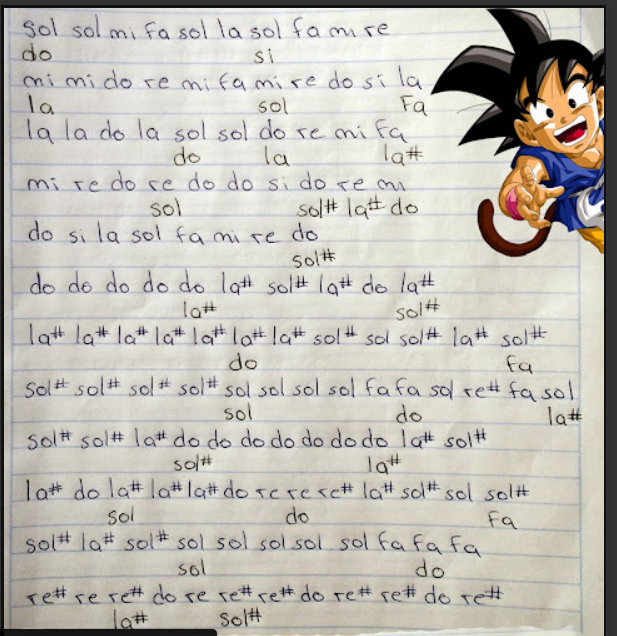 sol sol mi fa sol la sol fa mi re
do si
mi mi do re mi fa mi re do si la
la sol Fa
la la do la sol sol do re mi fa
do la la#
mi re do re do do si do re mi
sol sol# la# do
do si la sol fa mi re do
sol#
do do do do do la# sol# la# do la#
la# sol#
la# la# la# la# la# la# la# sol# sol sol# la# sol#
do fa
sol# sol# sol# sol# sol sol sol sol fa fa sol re# fa sol
sol do la#
sol# sol# la# do do do do do do do la# sol#
sol# la#
la# do la# la# la# do re re re re# la# sol# sol sol#
sol do Fa
sol# la# sol# sol sol sol sol sol fa fa fa
sol do
re# re re# do re re# re# do re# re# do re#
la# sol#